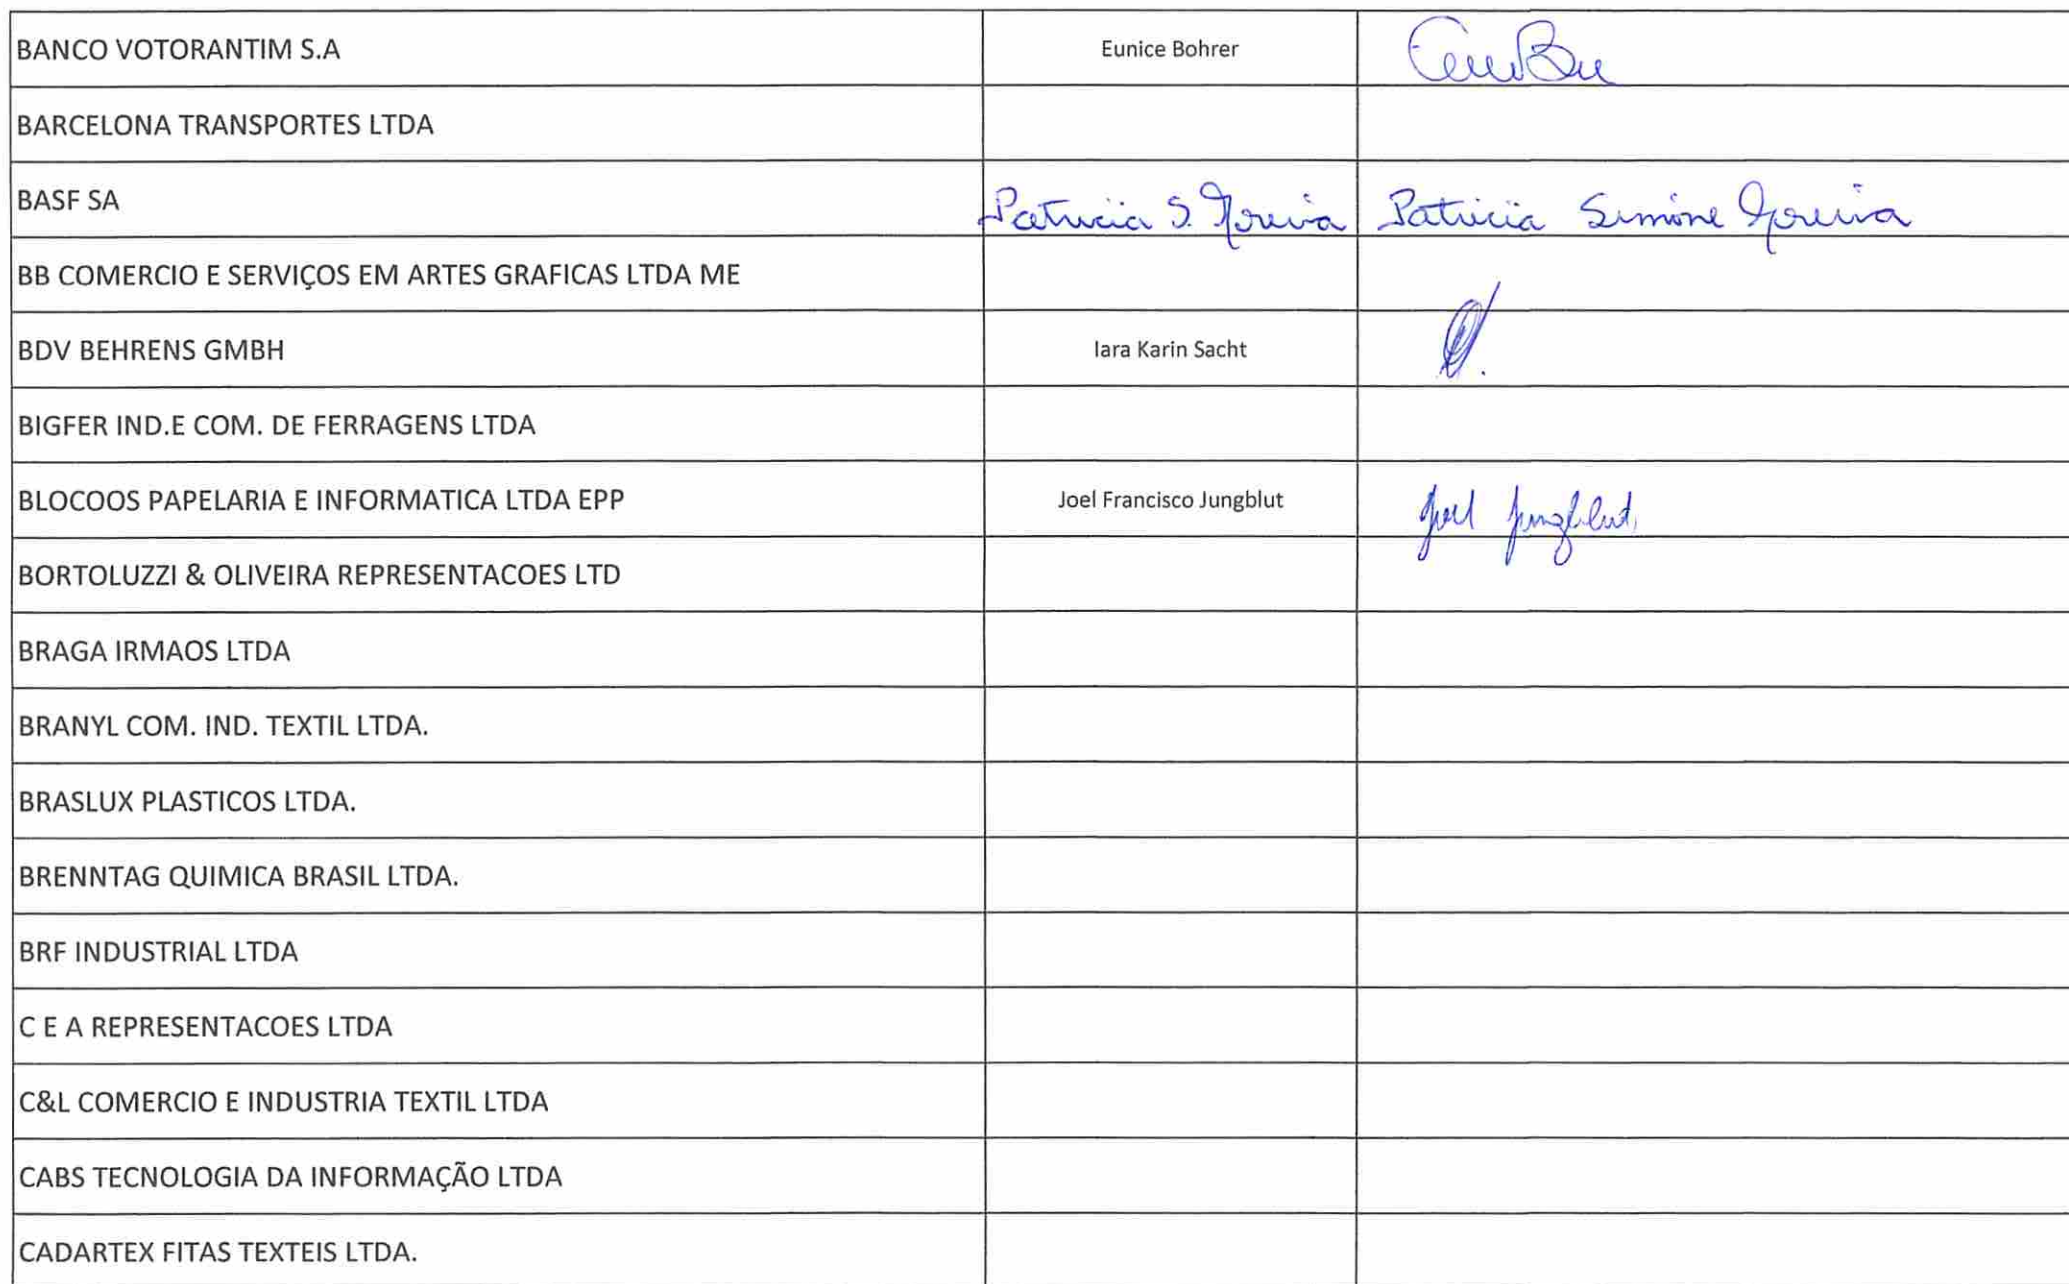 BANCO VOTORANTIM S.A Eunice Bohrer
BARCELONA TRANSPORTES LTDA
BASF SA Patricia S. Patricia Simone
BB COMERCIO E SERVIÇOS EM ARTES GRAFICAS LTDA ME
BDV BEHRENS GMBH Iara Karin Sacht
BIGFER IND.E COM. DE FERRAGENS LTDA
BLOCOOS PAPELARIA E INFORMATICA LTDA EPP Joel Francisco Jungblut Joel Jungblut
BORTOLUZZI & OLIVEIRA REPRESENTACOES LTD
BRAGA IRMAOS LTDA
BRANYL COM. IND. TEXTIL LTDA.
BRASLUX PLASTICOS LTDA.
BRENNTAG QUIMICA BRASIL LTDA.
BRF INDUSTRIAL LTDA
C E A REPRESENTACOES LTDA
C&L COMERCIO E INDUSTRIA TEXTIL LTDA
CABS TECNOLOGIA DA INFORMAÇÃO LTDA
CADARTEX FITAS TEXTEIS LTDA.